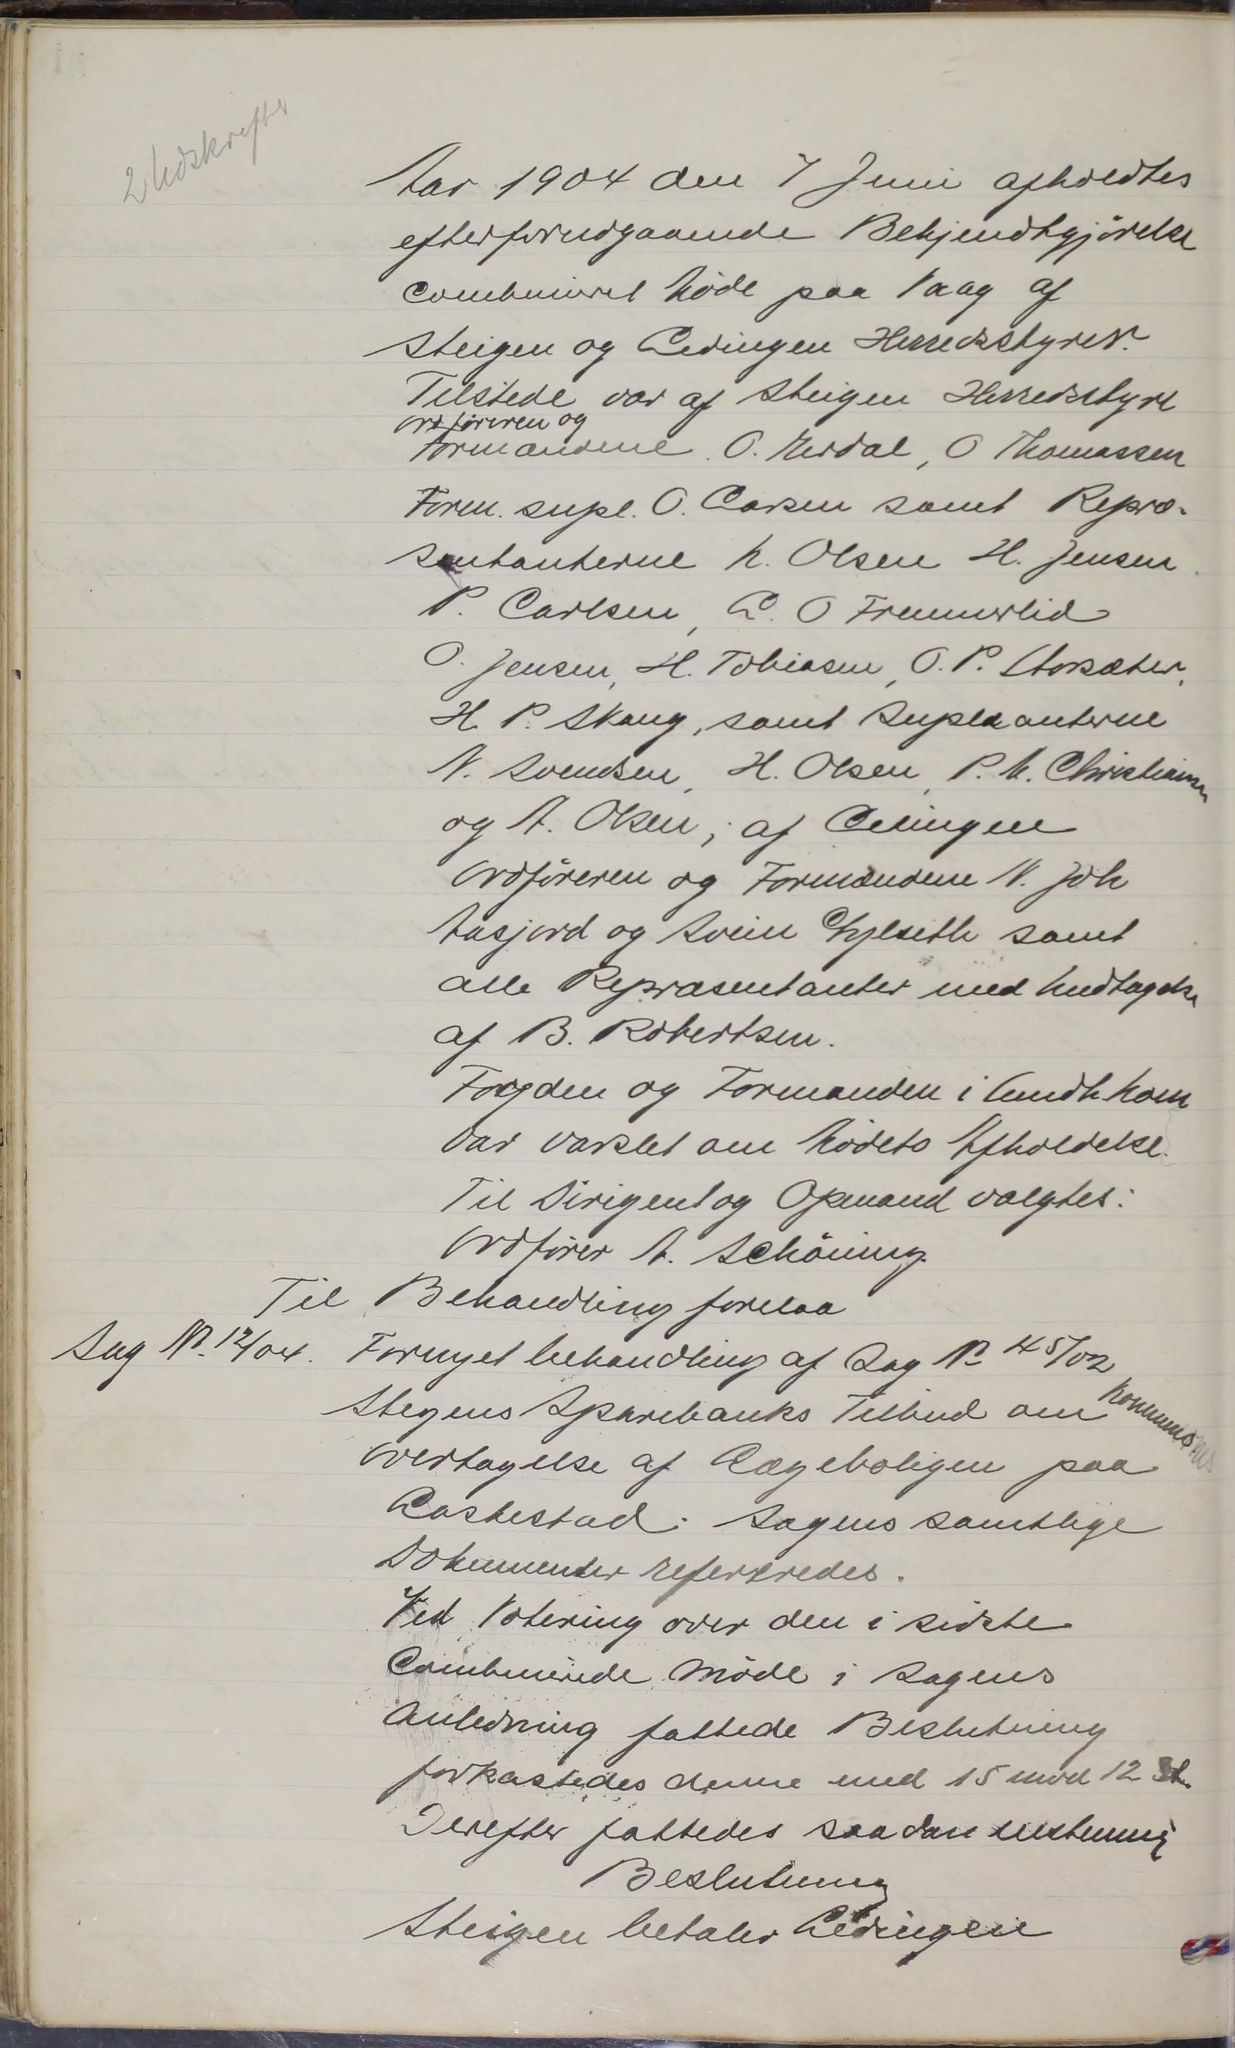 2 Udskrifter
Aar 1904 den 7 Juni afholdtes
efter forudgaaende Bekjendtgjörelse
Combineret Möde paa Vaag af
Steigen og Ledingen Herredsstyrer.
Tilstede var af Steigen Herredsstyre
Ordföreren og
Formændene O. Aerdal, O Thomassen
Form. supl. O. Larsen samt Repræ-
sentanterne M. Olsen H. Jensen
P. Carlsen, L. O Fremmerlid
O. Jensen, H. Tobiasen, O. P. Storsæter,
H. P. Skaug, samt Supleanterne
N. Svendsen, H. Olsen, P. M. Christiansen
og A. Olsen, af Ledingen
Ordföreren og Formændene N. Joh
Aasjord og Svein Hylseth samt
alle Repræsentanter med Undtagelse
af B. Robertsen.
Fogden og Formanden i Sundh.kom
var varslet om Mödets Afholdelse.
Til Dirigent og Opmand valgtes:
Ordförer A. Schöning.
Til Behandling forelaa
Sag No. 12/04. Fornyet behandling af Sag No 45/02
Stegens Sparebanks Tilbud om Kommunernes
Overtagelse af Lægeboligen paa
Laskestad. Sagens samtlige
Dokumenter refereredes.
Ved Votering over den i sidste
Combinerede Möde i Sagens
Anledning fattede Beslutning
forkastedes denne med 15 mod 12 St.
Derefter fattedes saadan enstemmig
Beslutning
Steigen betaler Ledingen